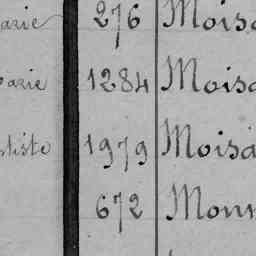 arie 276 Moisa
arie 1284 Moisa
tiste 1979 Moisa
672 Monn